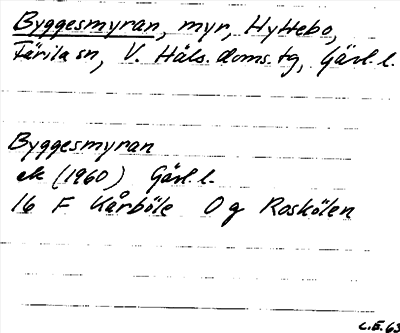 Byggesmyran, myr, Hyttebo,
Färila sn, V. Häls. doms. tg, Gävl. l.
Byggesmyran
ek (1960) Gävl. l.
16 F Kårböle 0 g Roskölen
C.E. 63